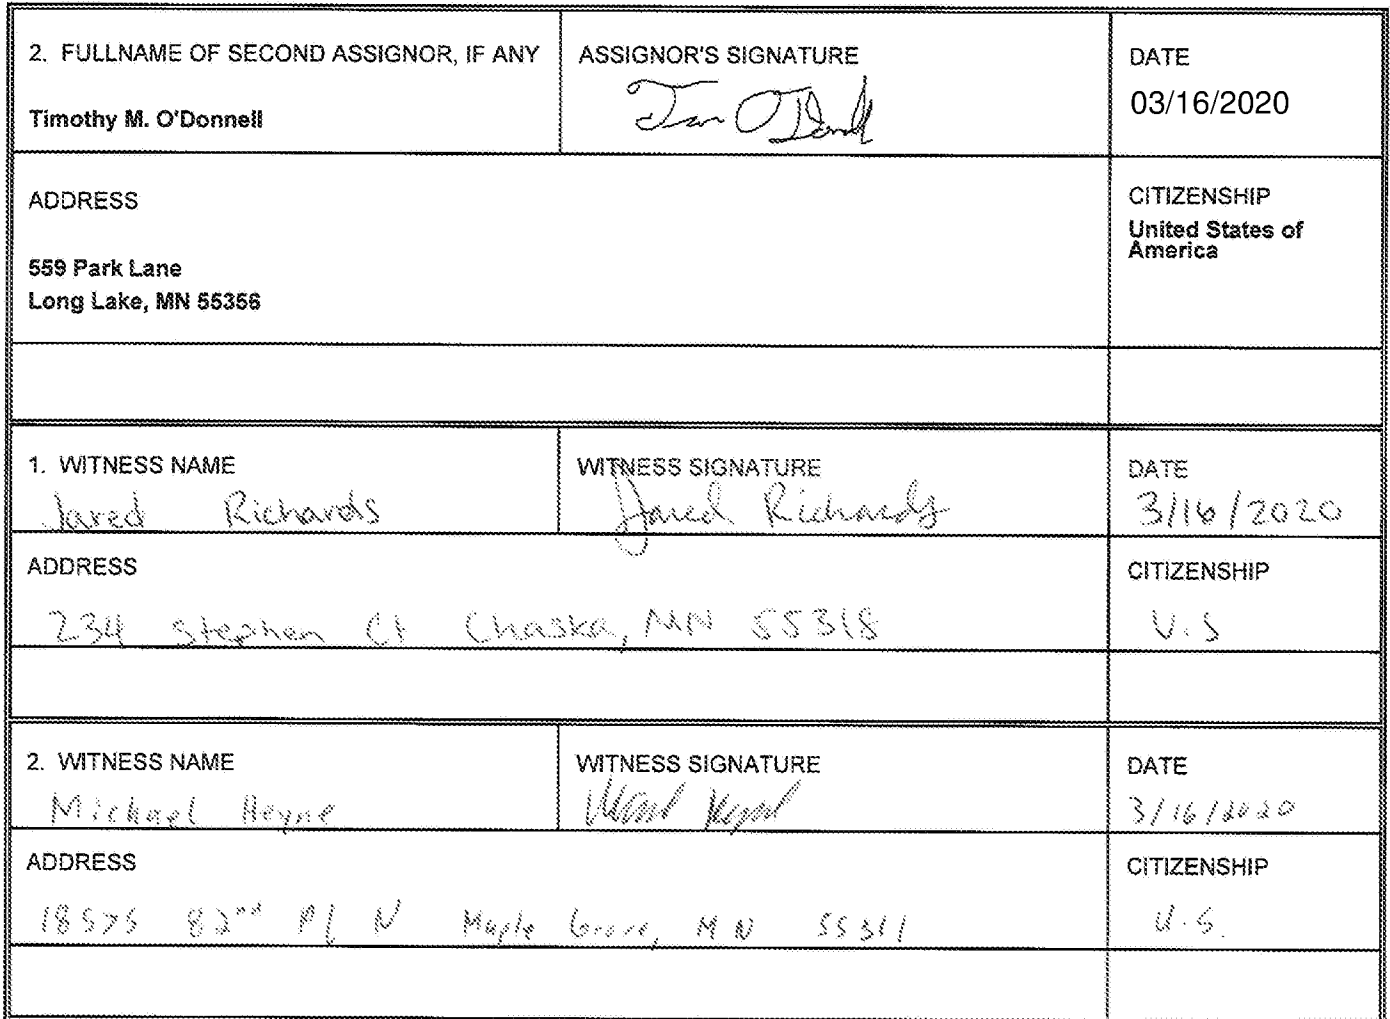 2. FULLNAME OF SECOND ASSIGNOR, IF ANY
Timothy M. O'Donnell
ASSIGNOR'S SIGNATURE
Tim O'Donnell
DATE
03/16/2020
ADDRESS
559 Park Lane
Long Lake, MN 55356
CITIZENSHIP
United States of
America
1. WITNESS NAME
Jared Richards
WITNESS SIGNATURE
Jared Richards
DATE
3/16/2020
ADDRESS
234 Stephen Ct Chaska, MN 55318
CITIZENSHIP
U.S
2. WITNESS NAME
Michael Heyne
WITNESS SIGNATURE
DATE
3/16/2020
ADDRESS
18575 82nd Pl N Maple Grove, MN 55311
CITIZENSHIP
U.S.